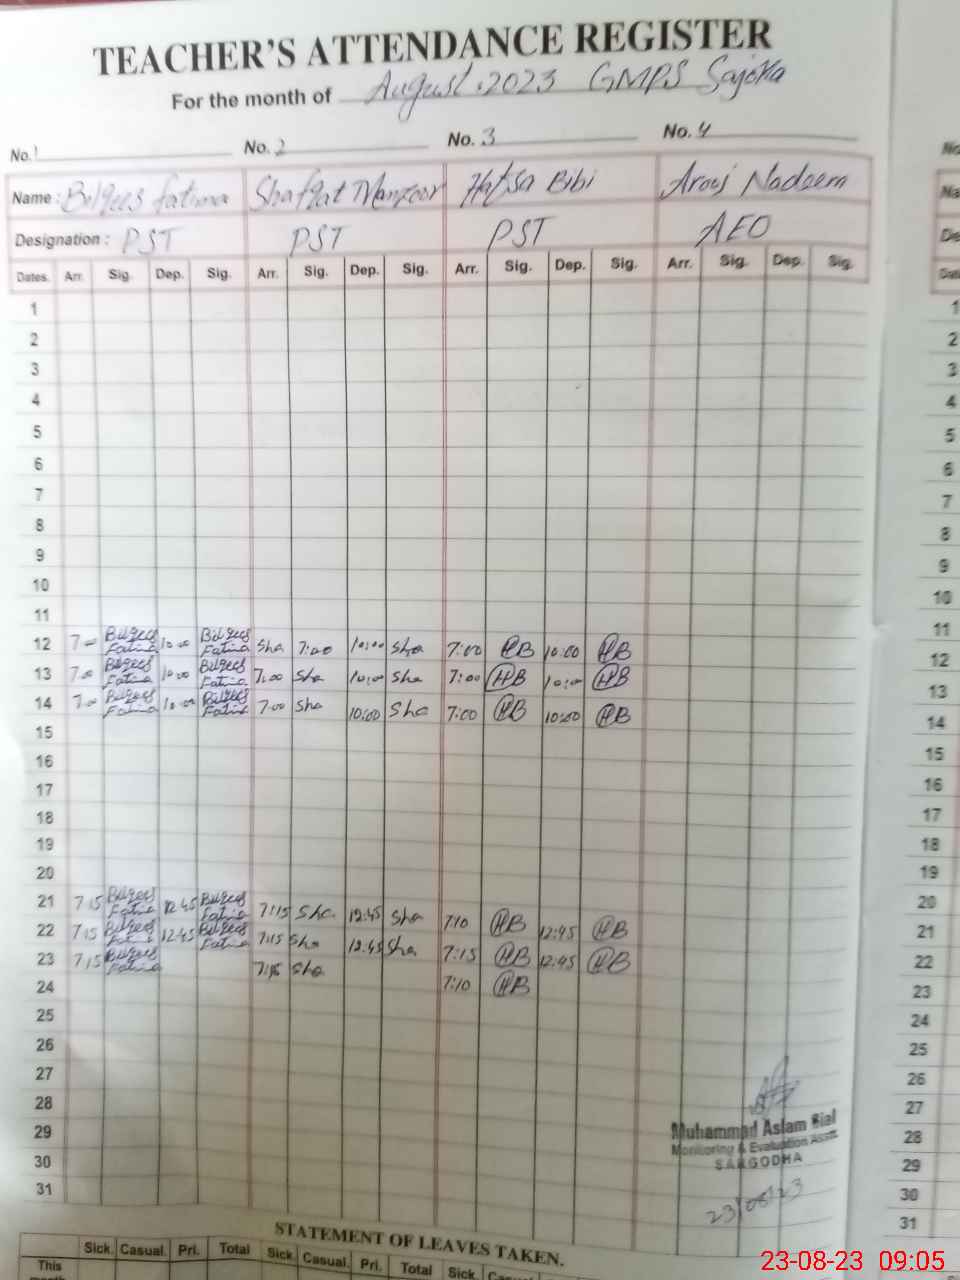 TEACHER'S ATTENDANCE REGISTER
For the month of August.2023 GMPS Sajoka
No. 1 No. 2 No. 3 No. 4
Name : Bilqees fatima Shafqat Manzoor Hafsa Bibi Arooj Nadeem
Designation : PST PST PST AEO
Dates. Arr. Sig. Dep. Sig. Arr. Sig. Dep. Sig. Arr. Sig. Dep. Sig. Arr. Sig. Dep. Sig.
1
2
3
4
5
6
7
8
9
10
11
12 7:00 Bilqees Fatima 10:00 Bilqees Fatima Sha 7:00 10:00 Sha 7:00 HB 10:00 HB
13 7:00 Bilqees Fatima 10:00 Bilqees Fatima 7:00 Sha 10:00 Sha 7:00 HB 10:00 HB
14 7:00 Bilqees Fatima 10:00 Bilqees Fatima 7:00 Sha 10:00 Sha 7:00 HB 10:00 HB
15
16
17
18
19
20
21 7:15 Bilqees Fatima 12:45 Bilqees Fatima 7:15 Sha 12:45 Sha 7:10 HB 12:45 HB
22 7:15 Bilqees Fatima 12:45 Bilqees Fatima 7:15 Sha 12:45 Sha 7:15 HB 12:45 HB
23 7:15 Bilqees Fatima 7:15 Sha 7:10 HB
24
25
26
27
28
29
30
31
Muhammad Aslam Sial
Monitoring & Evaluation Asstt.
SARGODHA
23/08/23
STATEMENT OF LEAVES TAKEN.
Sick. Casual. Pri. Total Sick. Casual. Pri. Total Sick.
This
1
2
3
4
5
6
7
8
9
10
11
12
13
14
15
16
17
18
19
20
21
22
23
24
25
26
27
28
29
30
31
23-08-23 09:05